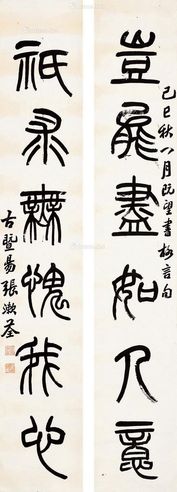 己巳秋八月既望書格言句
豈能盡如人意
祇求無愧我心
古暨昜張漱荃